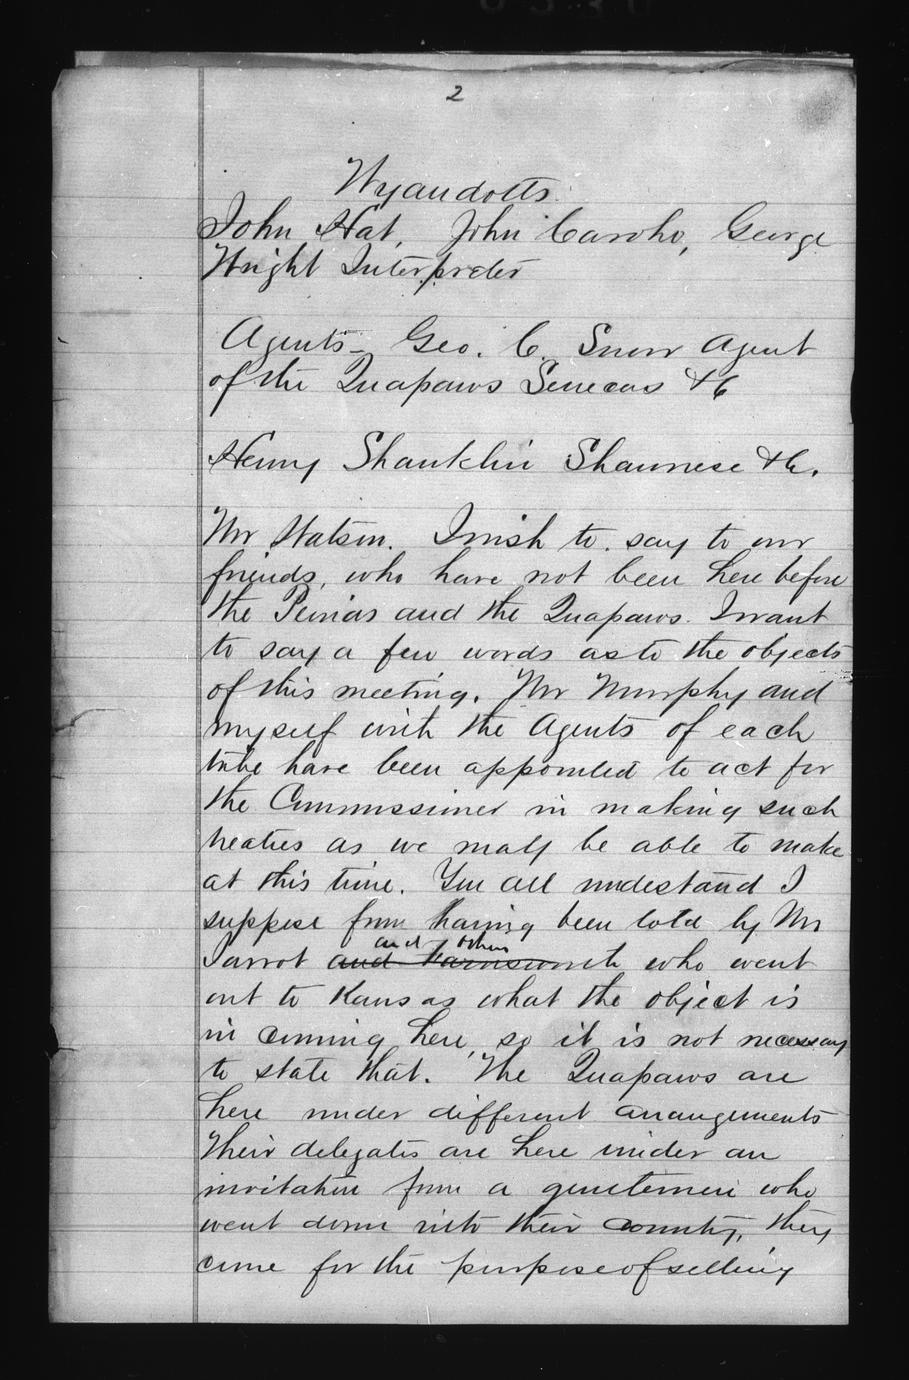 2
Wyandotts.
John Hat, John Caroho, George
Wright Interpreter
Agents - Geo. C. Snow Agent
of the Quapaws Senecas &c
Henry Shanklin Shawnese &c.
Mr Watson. I wish to say to our
friends, who have not been here before
the Peorias and the Quapaws. I want
to say a few words as to the objects
of this meeting. Mr Murphy and
myself with the Agents of each
tribe have been appointed to act for
the Commissioner in making such
treaties as we may be able to make
at this time. You all undestand I
suppose from having been told by Mr
and others
Parrot and Farnsworth who went
out to Kansas what the object is
in coming here, so it is not necessary
to state that. The Quapaws are
here under different arrangements
Their delegates are here under an
invitation from a gentlemen who
went down into their country, they
came for the purpose of selling